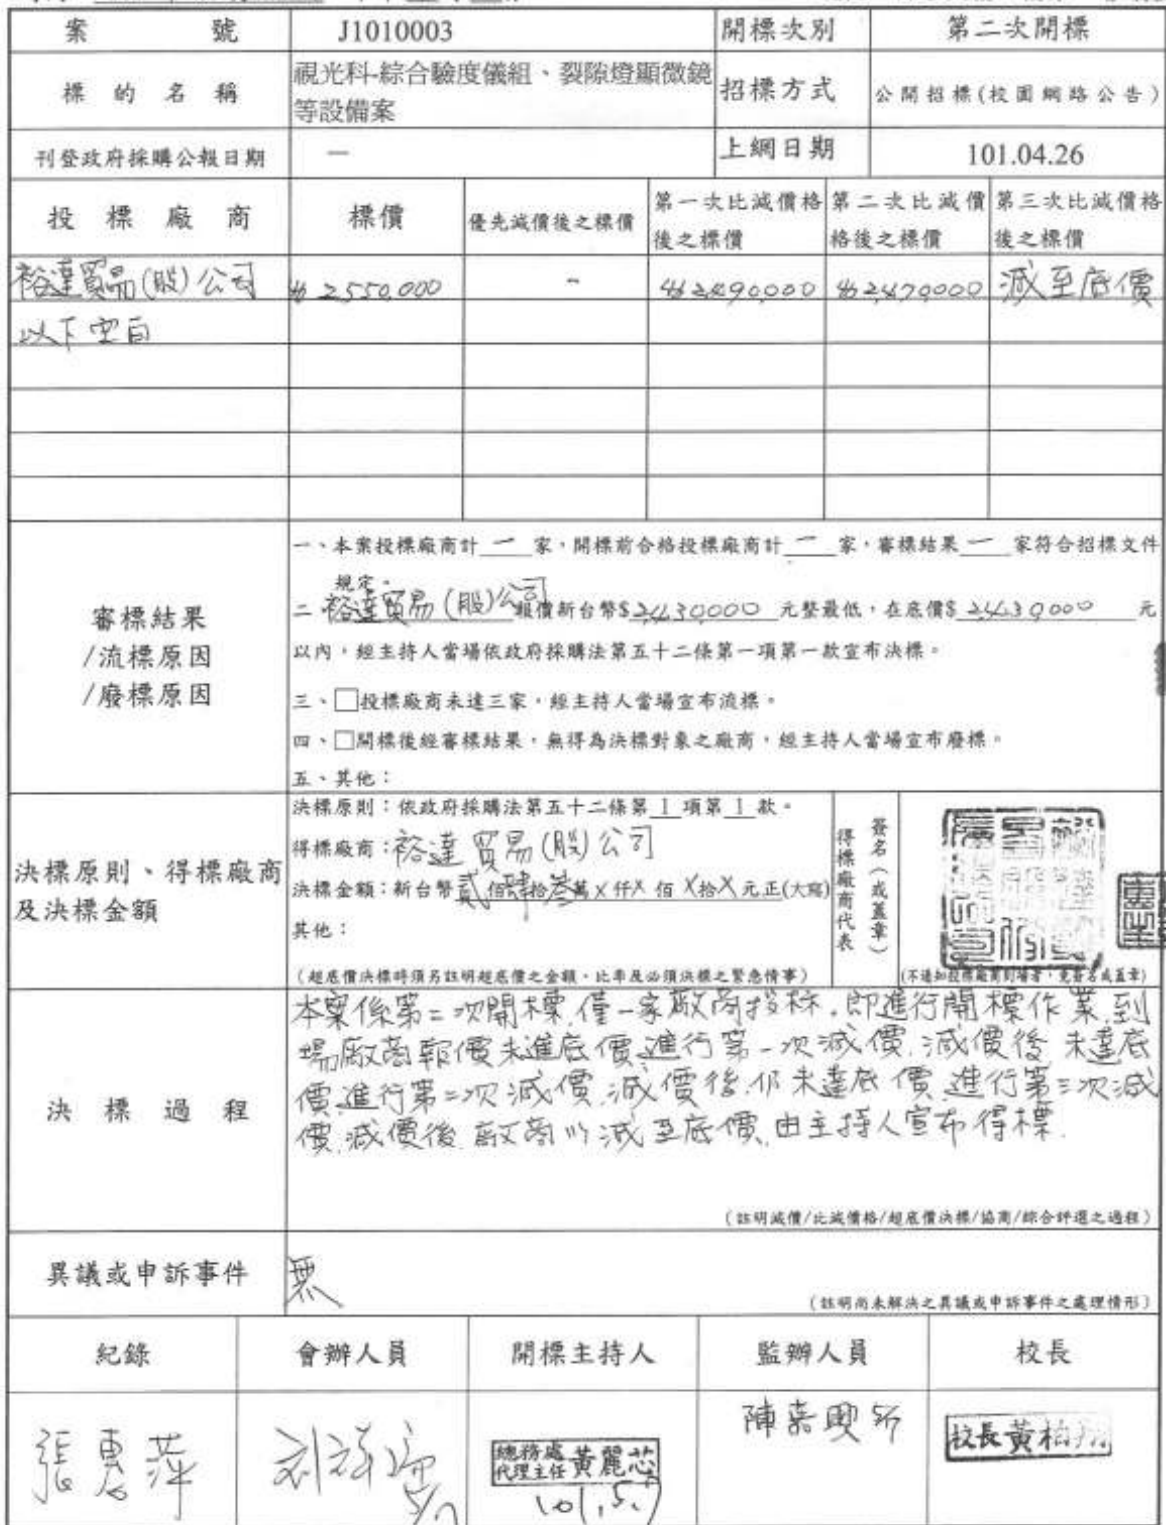 案 號 J1010003 開標次別 第二次開標
標的名稱 視光科-綜合驗度儀組、裂隙燈顯微鏡等設備案 招標方式 公開招標(校園網路公告)
刊登政府採購公報日期 — 上網日期 101.04.26
投標廠商 標價 優先減價後之標價 第一次比減價格後之標價 第二次比減價格後之標價 第三次比減價格後之標價
裕達貿易(股)公司 2,550,000 - 2,490,000 2,470,000 減至底價
以下空白
審標結果
/流標原因
/廢標原因
一、本案投標廠商計 一 家，開標前合格投標廠商計 一 家，審標結果 一 家符合招標文件
規定。
二 裕達貿易(股)公司 報價新台幣$2,430,000 元整最低，在底價$2,430,000 元
以內，經主持人當場依政府採購法第五十二條第一項第一款宣布決標。
三、□投標廠商未達三家，經主持人當場宣布流標。
四、□開標後經審標結果，無得為決標對象之廠商，經主持人當場宣布廢標。
五、其他：
決標原則、得標廠商
及決標金額
決標原則：依政府採購法第五十二條第 1 項第 1 款。
得標廠商：裕達貿易(股)公司
決標金額：新台幣貳佰肆拾叁萬X仟X佰X拾X元正(大寫)
其他：
(超底價決標時須另註明超底價之金額、比率及必須決標之緊急情事)
得標廠商代表
簽名(或蓋章)
(不通知投標廠商到場者，免簽名或蓋章)
決標過程
本案係第二次開標,僅一家廠商投标,即進行開標作業,到
場廠商報價未進底價,進行第一次減價,減價後,未達底
價,進行第二次減價,減價後,仍未達底價,進行第三次減
價,減價後,廠商以減至底價,由主持人宣布得標.
(註明減價/比減價格/超底價決標/協商/綜合評選之過程)
異議或申訴事件 無
(註明尚未解決之異議或申訴事件之處理情形)
紀錄 會辦人員 開標主持人 監辦人員 校長
張惠萍
總務處
代理主任 黃麗芯
101.5.7
陳嘉興 5/7
校長黃柏翔